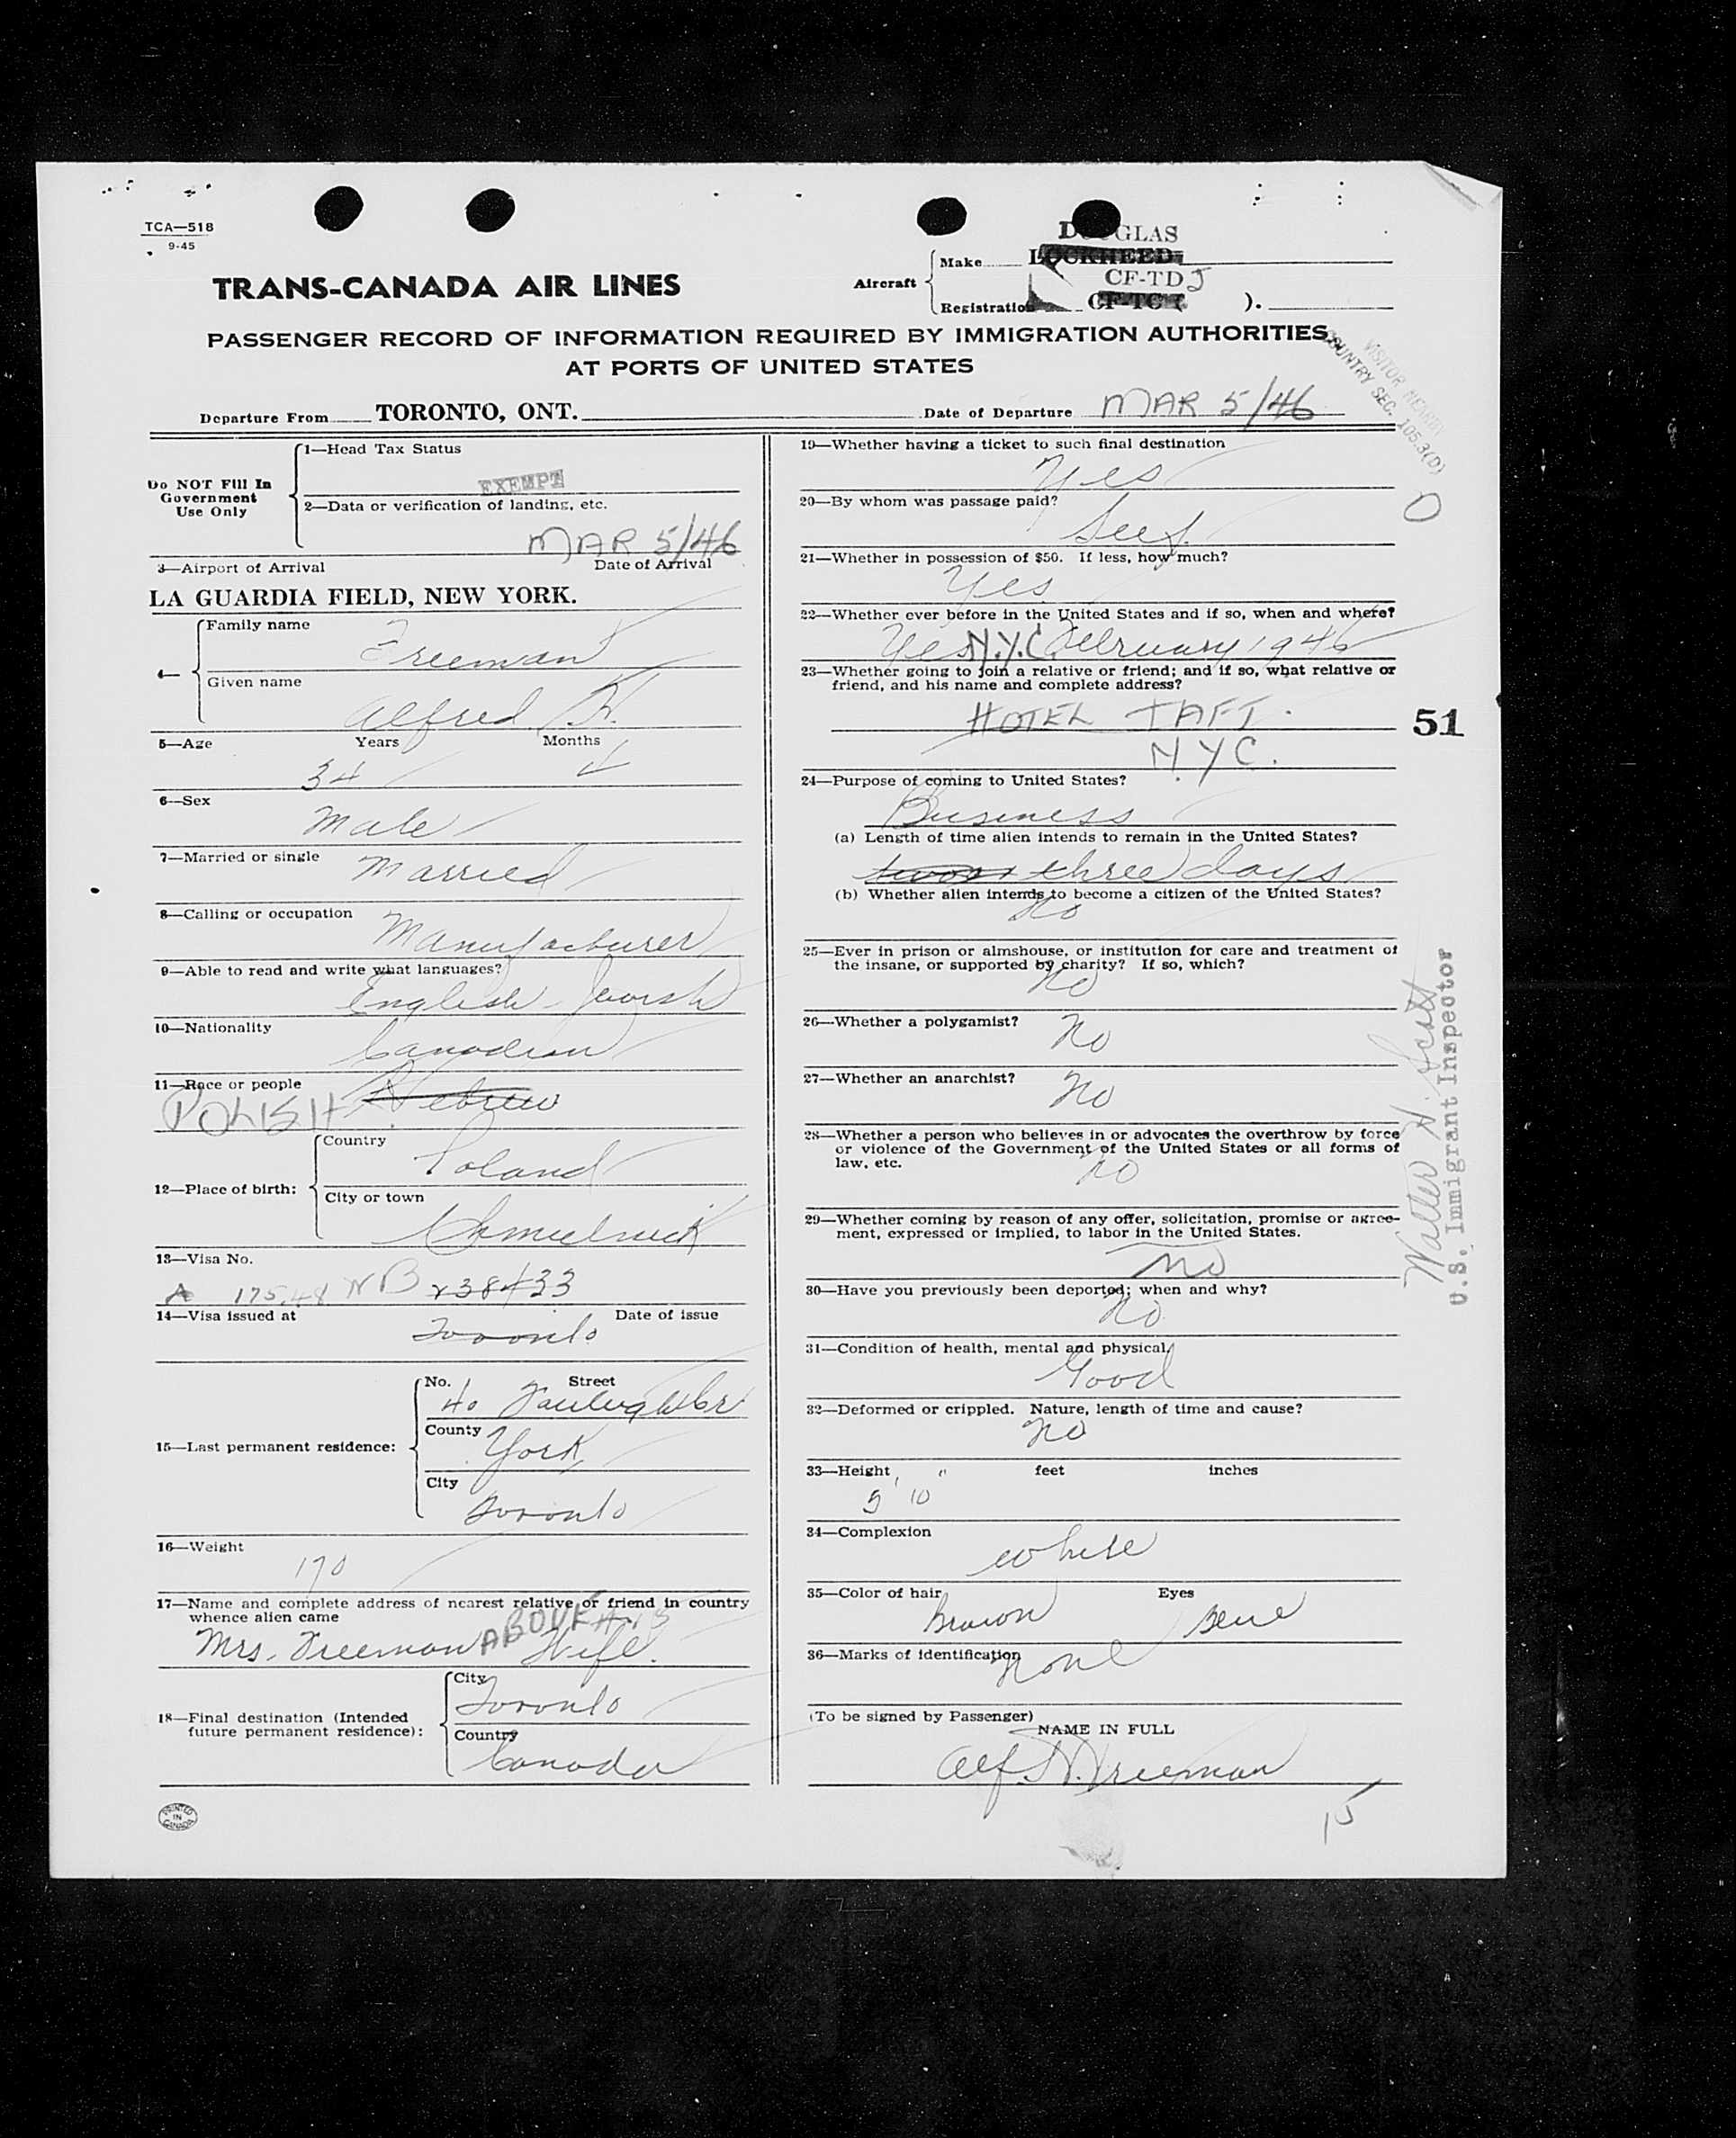 TCA—518
9-45
DOUGLAS
Aircraft
Make LOCKHEED
CF-TDJ
Registration CF-TC ( ).
TRANS-CANADA AIR LINES
PASSENGER RECORD OF INFORMATION REQUIRED BY IMMIGRATION AUTHORITIES
AT PORTS OF UNITED STATES
VISITOR
COUNTRY SEC. 105.3(D)
Departure From TORONTO, ONT.
Date of Departure MAR 5/46
Do NOT Fill In
Government
Use Only
1—Head Tax Status
EXEMPT
2—Data or verification of landing, etc.
MAR 5/46
3—Airport of Arrival Date of Arrival
LA GUARDIA FIELD, NEW YORK.
4—
Family name
Freeman
Given name
Alfred H.
5—Age Years Months
34
6—Sex
Male
7—Married or single
Married
8—Calling or occupation
Manufacturer
9—Able to read and write what languages?
English Jewish
10—Nationality
Canadian
11—Race or people
POLISH Hebrew
12—Place of birth:
Country
Poland
City or town
13—Visa No.
A 17548 NB
14—Visa issued at Date of issue
Toronto
15—Last permanent residence:
No. Street
40
County
York
City
Toronto
16—Weight
170
17—Name and complete address of nearest relative or friend in country
whence alien came
ABOVE
Mrs. Freeman Wife.
18—Final destination (Intended
future permanent residence):
City
Toronto
Country
Canada
PRINTED
IN
CANADA
19—Whether having a ticket to such final destination
Yes
20—By whom was passage paid?
Self
21—Whether in possession of $50. If less, how much?
Yes
22—Whether ever before in the United States and if so, when and where?
Yes N.Y.C. February 1946
23—Whether going to join a relative or friend; and if so, what relative or
friend, and his name and complete address?
HOTEL TAFT.
NYC.
51
24—Purpose of coming to United States?
Business
(a) Length of time alien intends to remain in the United States?
three days
(b) Whether alien intends to become a citizen of the United States?
No
25—Ever in prison or almshouse, or institution for care and treatment of
the insane, or supported by charity? If so, which?
No
26—Whether a polygamist?
No
27—Whether an anarchist?
No
28—Whether a person who believes in or advocates the overthrow by force
or violence of the Government of the United States or all forms of
law, etc.
No
29—Whether coming by reason of any offer, solicitation, promise or agree-
ment, expressed or implied, to labor in the United States.
No
30—Have you previously been deported; when and why?
No
31—Condition of health, mental and physical.
Good
32—Deformed or crippled. Nature, length of time and cause?
No
33—Height feet inches
5' 10"
34—Complexion
White
35—Color of hair Eyes
Brown Blue
36—Marks of identification
None
(To be signed by Passenger)
NAME IN FULL
Alf. H. Freeman
15
Walter H. Scott
U.S. Immigrant Inspector